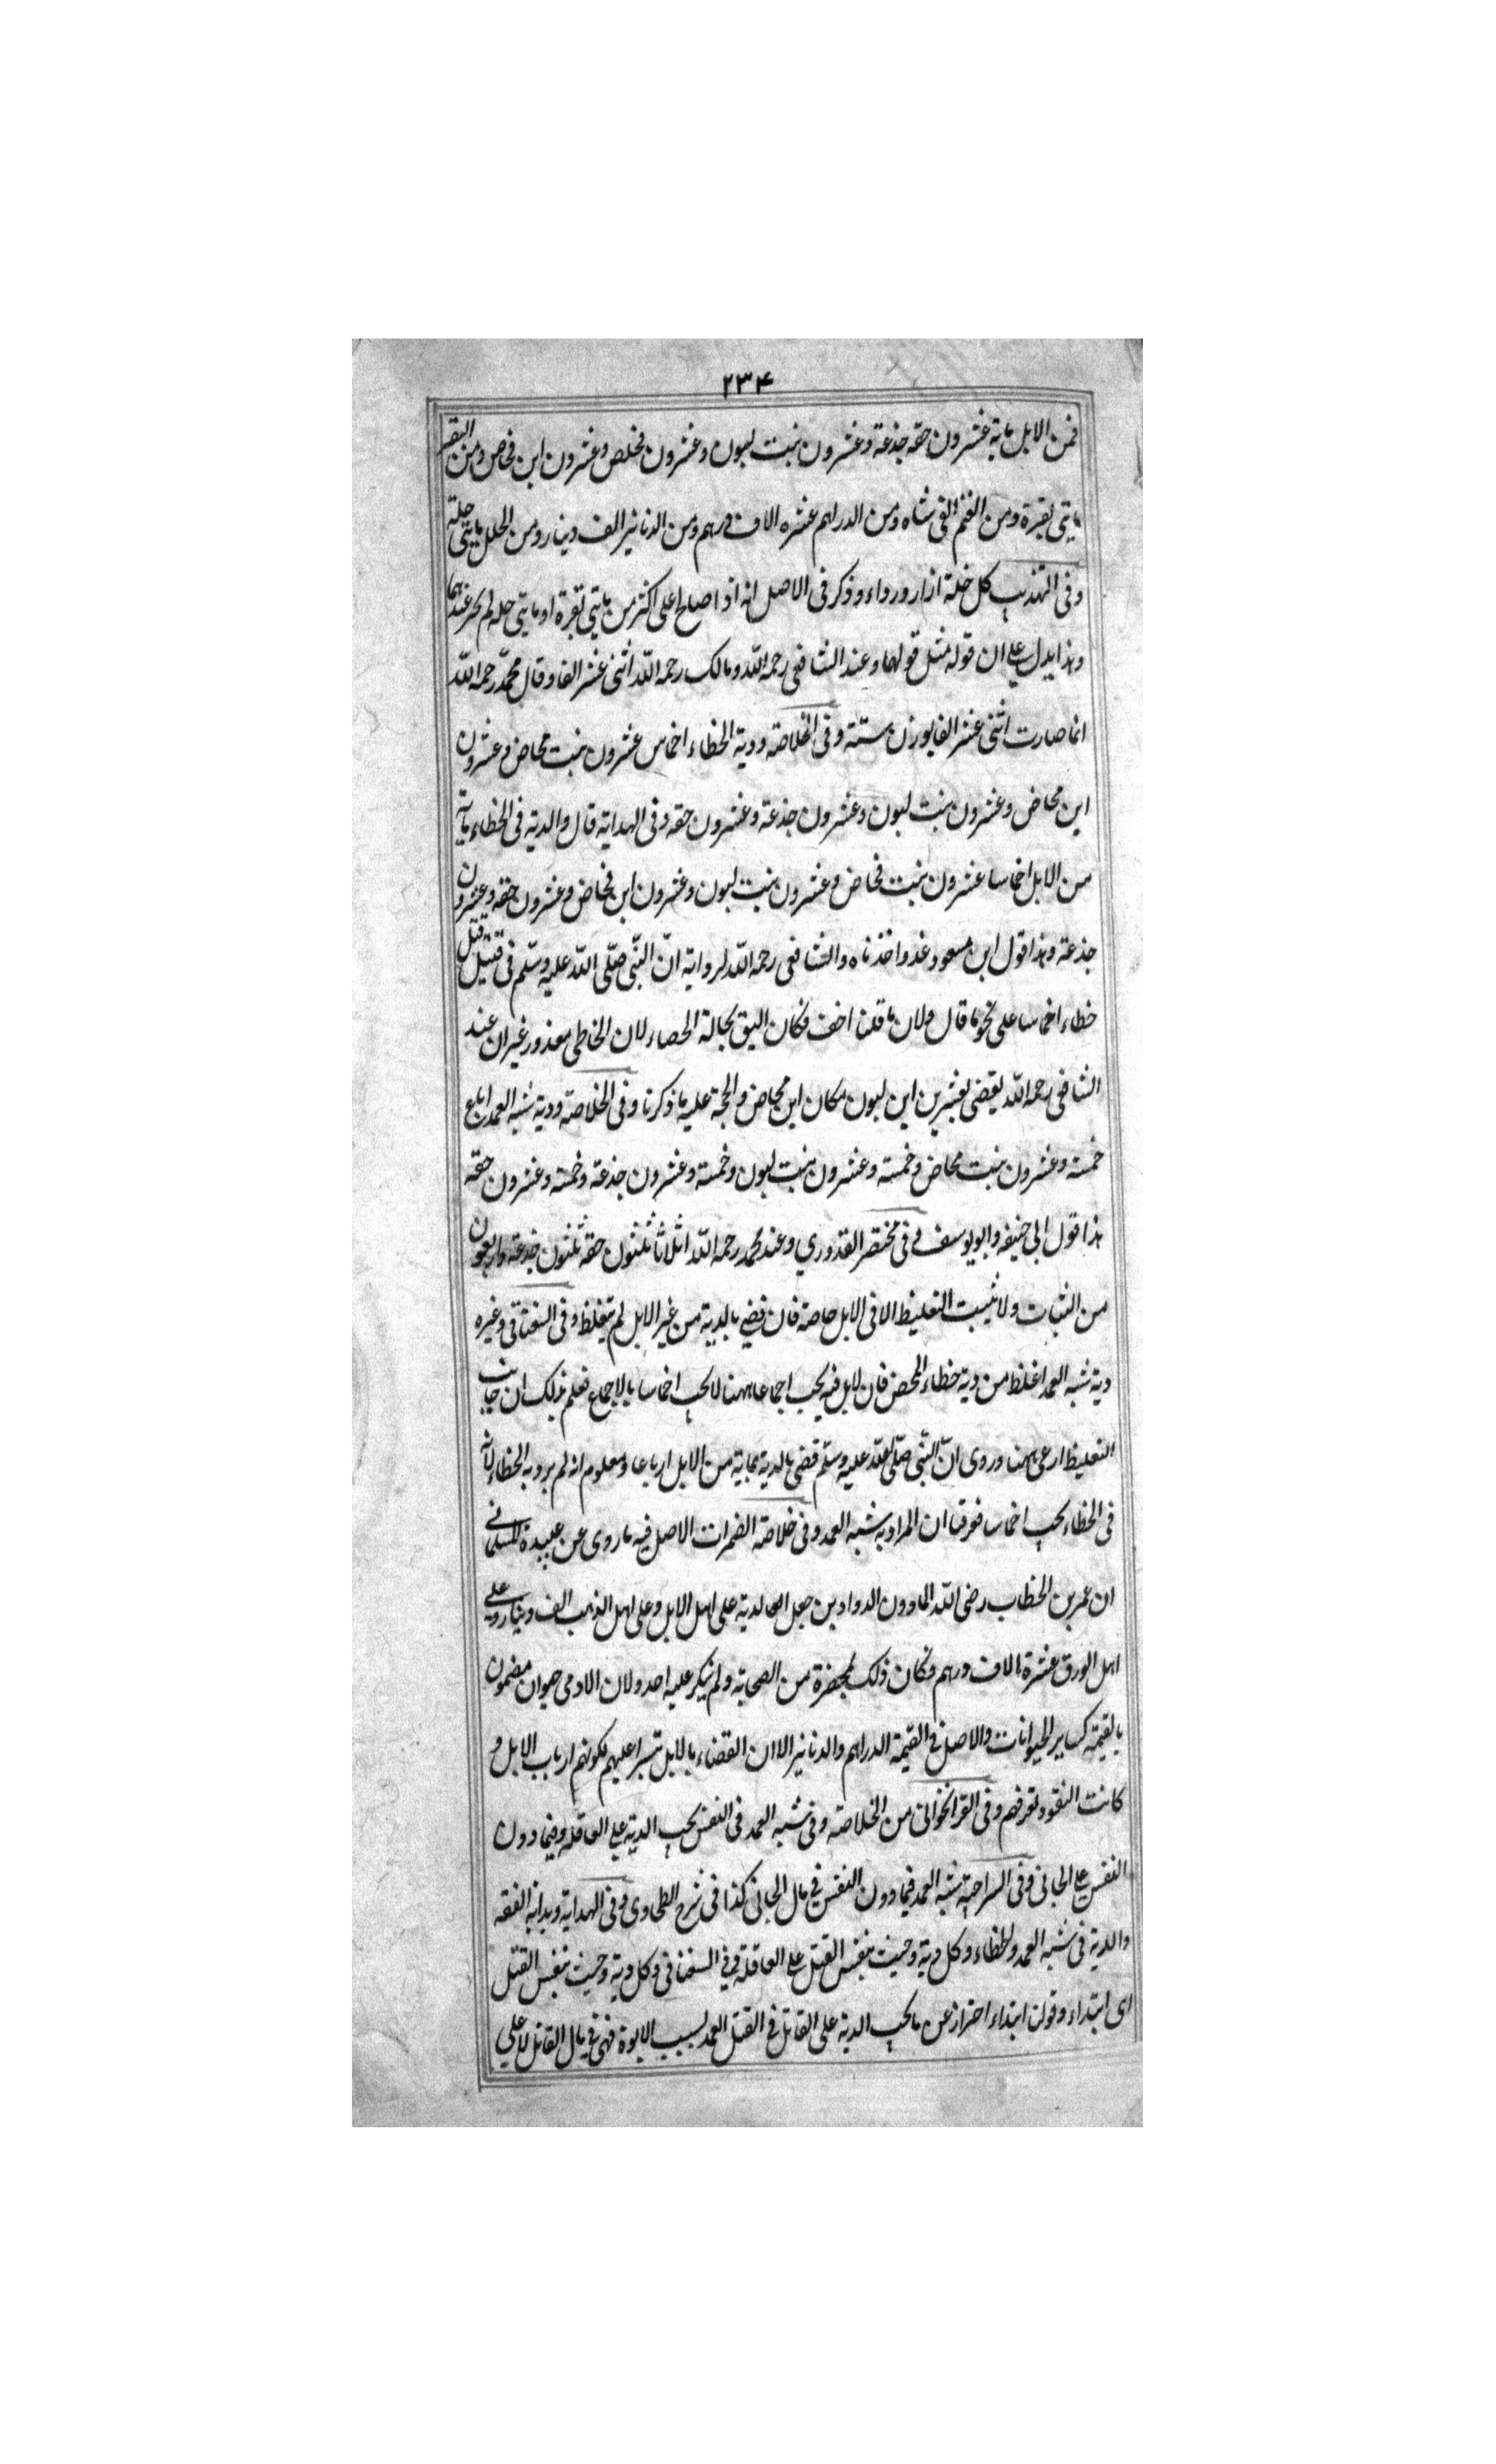 ٢٣۴
فمن الابل ماية عشرون حقه جذعة وعشرون بنت لبون وعشرون مخلص وعشرون ابن مخاص ومن البقر
مايتى بقرة ومن الغنم الفى شاه ومن الدراهم عشره الاف درهم ومن الدنانير الف دينار ومن الحلل مايتى حلة
وفى التهذيب كل حلة ازار ورداء وذكر فى الاصل انه اذا صلح على اكثر من مايتى بقرة او مايتى حله لم يجز عندهما
وهذا يدل على ان قوله مثل قولهما وعند الشافعى رحمه اللّه ومالك رحمه اللّه اثنى عشر الفا وقال محمّد رحمه اللّه
انما صارت اثنى عشر الفا بوزن ستة وفى الخلاصة ودية الخطاء اخماس عشرون بنت محاض وعشرون
ابن محاض وعشرون بنت لبون وعشرون جذعة وعشرون حقه وفى الهداية قال والدية فى الخطاء ماية
من الابل اخماسا عشرون بنت مخاض وعشرون بنت لبون وعشرون ابن مخاض وعشرون حقه وعشرون
جذعة وهذا قول ابن مسعود واخذناه والشافعى رحمه اللّه لرواية انّ النّبى صلّى اللّه عليه وسلّم فى قتيل قتل
خطاء اخماسا على نحو ما قال ولان ما قلنا اخف فكان اليق بحالة الحصاء لان الخاطى معذور غير ان عند
الشافعى رحمه اللّه يقضى بعشرين ابن لبون مكان ابن محاض والحجة عليه ما ذكرنا وفى الخلاصة ودية شبه العمد ارباع
خمسة وعشرون بنت محاض وخمسة وعشرون بنت لبون وخمسة وعشرون جذعة وخمسة وعشرون حقه
هذا قول ابى حنيفه وابو يوسف وفى مختصر القدوري وعند محمد رحمه اللّه اثلاثا ثلثون حقة ثلثون جذعة واربعون
من الثنيات ولا يثبت التغليظ الا فى الابل خاصة فان قضى بالدية من غير الابل لم يتغلظ وفى السغناقى وغيره
دية شبه العمد اغلظ من دية خطاء المحض فان لابل فيه يجب اجماعا ههنا لا يجب اخماسا بالاجماع فعلم بذلك ان جانب
التغليظ ارعى ههنا وروى انّ النّبى صلّى اللّه عليه وسلّم قضى بالدية بماية من الابل ارباعا ومعلوم انه لم يرد به الخطاء لانه
فى الخطاء يجب اخماسا فعرفنا ان المراد به شبه العمد وفى خلاصة المضمرات الاصل فيه ما روى عن عبيدة السلمانى
ان عمر بن الخطاب رضى اللّه لما دون الدواوين جعل الدية على اهل الابل وعلى اهل الذهب الف دينار وعلى
اهل الورق عشرة الاف درهم وكان ذلك بحضرة من الصحابة ولم ينكر عليه احد ولان الادمى حيوان مضمون
بالقيمة كساير الحيوانات والاصل فى القيمة الدراهم والدنانير الا ان القضاء بالابل تيسرا عليهم لكونهم ارباب الابل و
كانت النقود تعرفهم وفى القراخوانى من الخلاصة وفى شبه العمد فى النفس يجب الدية على العاقلة وفيما دون
النفس على الجانى وفى السراجية شبه العمد فيما دون النفس فى مال الجانى كذا فى شرح الطحاوى وفى الهداية وبداية الفقه
والدية فى شبه العمد والخطاء وكل دية وجبت بنفس القتل على العاقلة وفى السغناقى وكل دية وجبت بنفس القتل
اى ابتداء وقوله ابتداء احتراز عن ما يجب الدية على القاتل فى القتل العمد بسبب الابوة فهى فى مال القاتل لا على